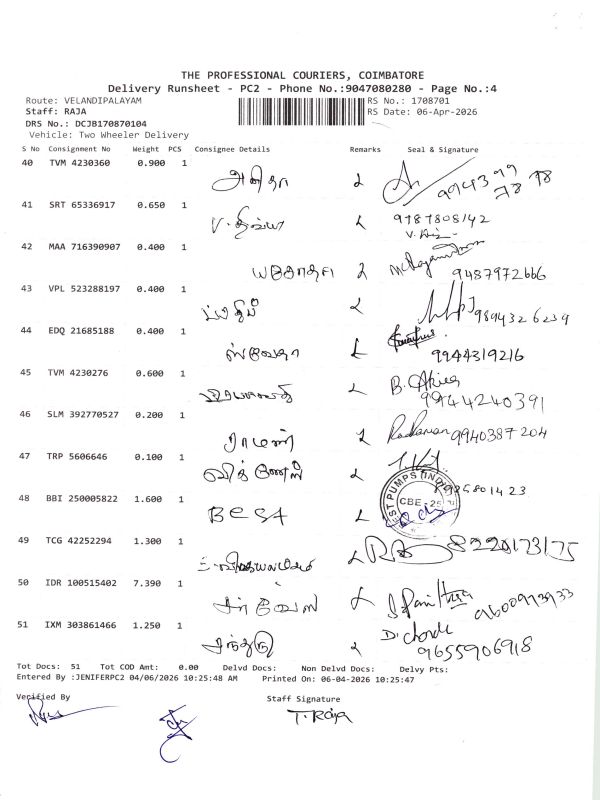 THE PROFESSIONAL COURIERS, COIMBATORE
Delivery Runsheet - PC2 - Phone No.:9047080280 - Page No.:4
Route: VELANDIPALAYAM
RS No.: 1708701
Staff: RAJA
RS Date: 06-Apr-2026
DRS No.: DCJB170870104
Vehicle: Two Wheeler Delivery
S No Consignment No Weight PCS Consignee Details Remarks Seal & Signature
40 TVM 4230360 0.900 1
அனிதா
41 SRT 65336917 0.650 1
V. திவ்யா 9787808142
42 MAA 716390907 0.400 1
யசோதா 9487972666
43 VPL 523288197 0.400 1
பிரதீப் 9894326239
44 EDQ 21685188 0.400 1
ஸ்வேதா 9944319216
45 TVM 4230276 0.600 1
B. 9944240391
46 SLM 392770527 0.200 1
ராமன் Raraman 9940387204
47 TRP 5606646 0.100 1
விக்னேஷ்
48 BBI 250005822 1.600 1
BEST PUMPS (INDIA) CBE - 25
49 TCG 42252294 1.300 1
8220173175
50 IDR 100515402 7.390 1
9600973933
51 IXM 303861466 1.250 1
சந்துரு 9655906918
Tot Docs: 51 Tot COD Amt: 0.00 Delvd Docs: Non Delvd Docs: Delvy Pts:
Entered By :JENIFERPC2 04/06/2026 10:25:48 AM Printed On: 06-04-2026 10:25:47
Verified By Staff Signature
T. Raja